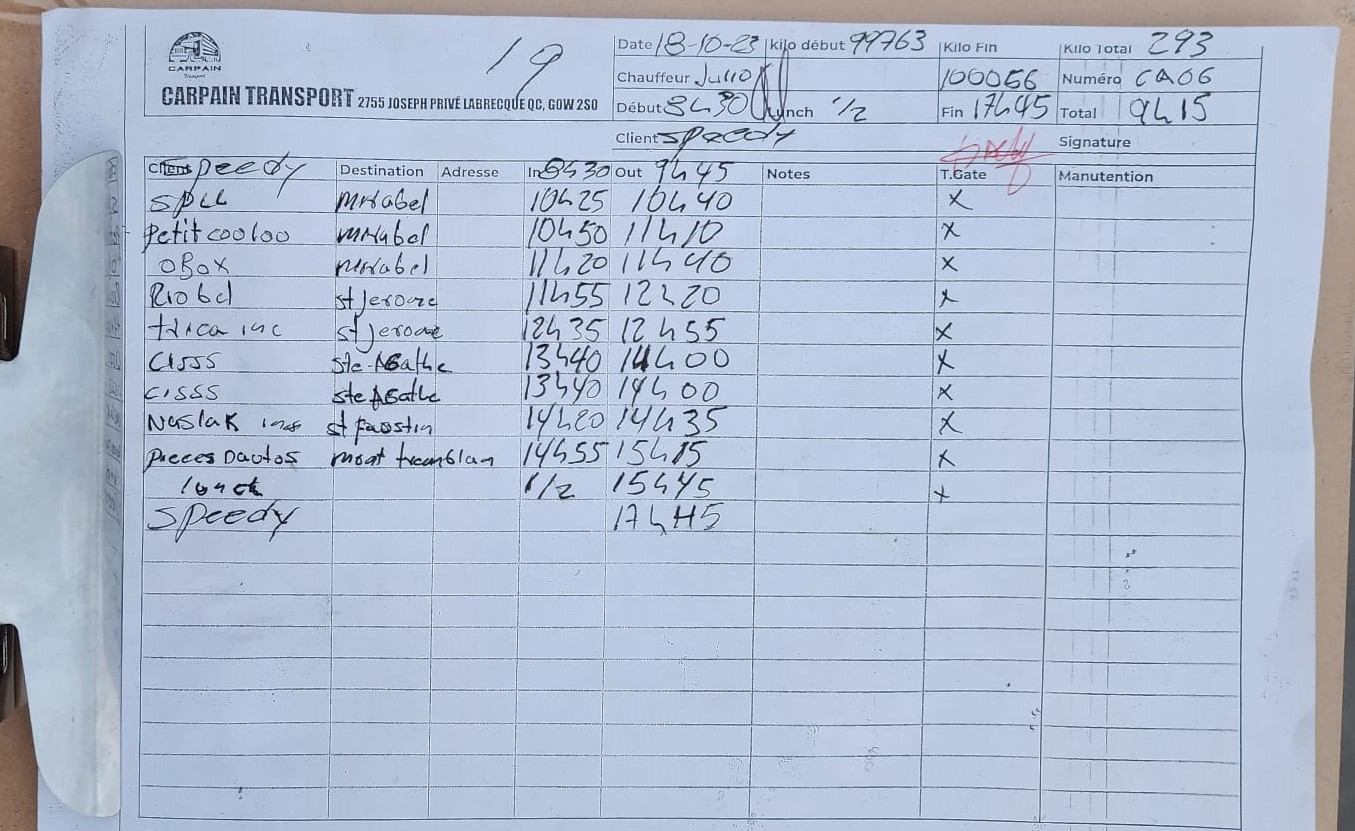 19
Date 18-10-23 kilo début 99763 Kilo Fin 100056 Kilo Total 293
CARPAIN
Transport
Chauffeur Julio Numéro CA06
CARPAIN TRANSPORT 2755 JOSEPH PRIVÉ LABRECQUE QC, G0W 2S0
Début 8h30 Lunch 1/2 Fin 17h45 Total 9h15
Client speedy Signature
Client speedy Destination Adresse In 8h30 Out 9h45 Notes T.Gate Manutention
mirabel 10h25 10h40 X
Petit cooloo mirabel 10h50 11h10 X
OBOX mirabel 11h20 11h40 X
Riobel st Jerome 11h55 12h20 X
trica inc st Jerome 12h35 12h55 X
CISSS ste-Agathe 13h40 14h00 X
CISSS ste Agathe 13h40 14h00 X
st faustin 14h20 14h35 X
pieces Dautos mont tremblan 14h55 15h15 X
lunch 1/2 15h45 X
Speedy 17h45